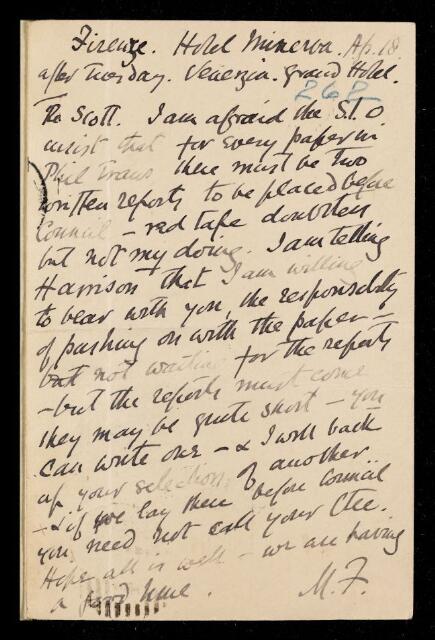 Firenze. Hotel Minerva. Ap. 18
after Tuesday. Venezia. Grand Hotel.
268
Scott. I am afraid the S.I.O
insist that for every paper in
Phil Trans there must be two
written reports to be placed before
Council - red tape doubtless
but not my doing. I am telling
Harrison that I am willing
to bear with you, the responsibility
of pushing on with the paper -
but not waiting for the reports
- but the reports must come
they may be quite short - you
can write one - & I will back
up your selection of another..
- & if we lay them before Council
you need not call your Ctee.
Hope all is well - we are having
a good time. M.F.